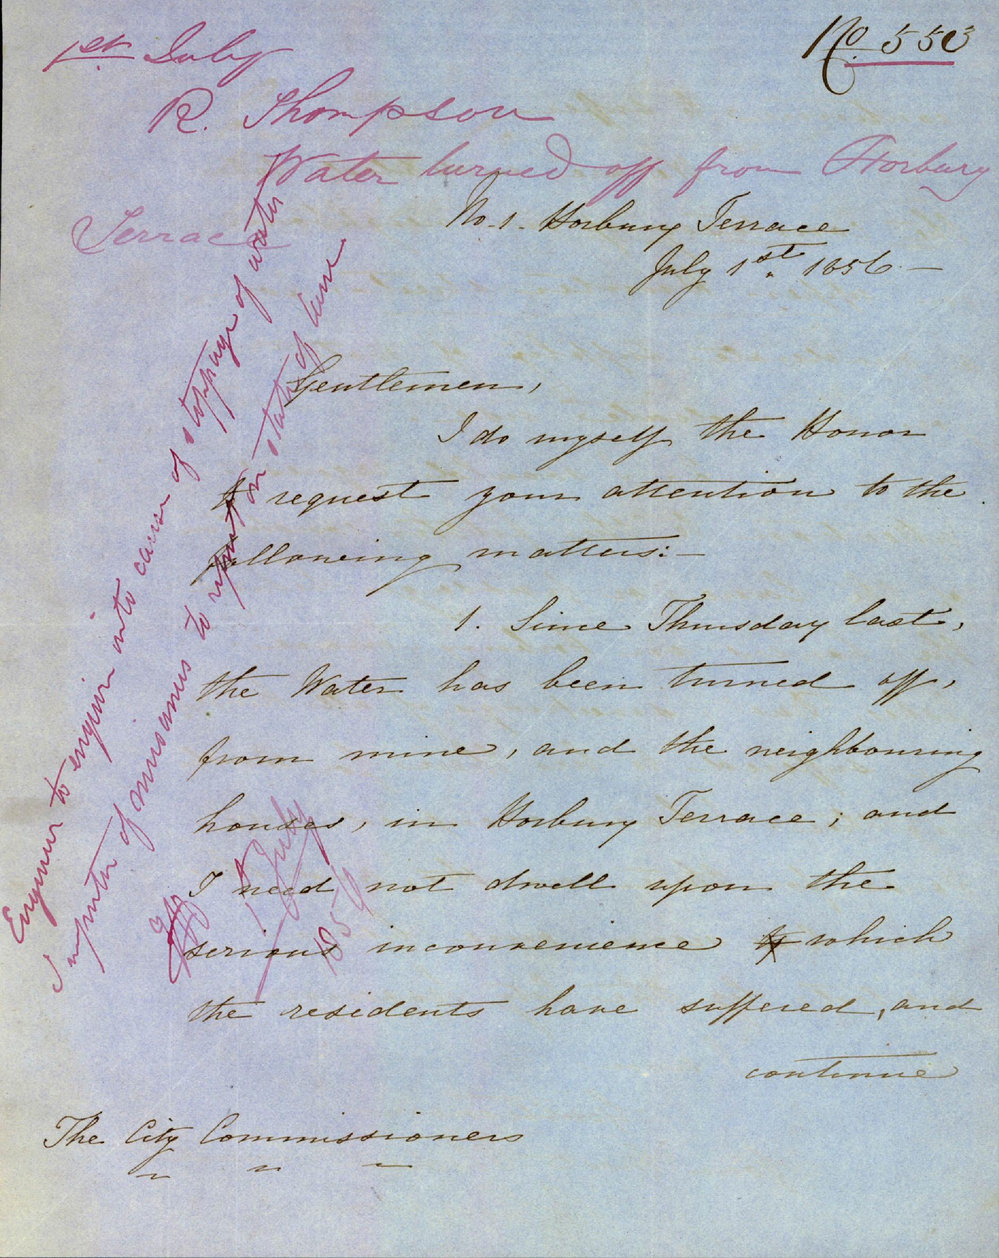 No. 553
1st July
R. Thompson
Water turned off from Horbury
Terrace
No. 1. Horbury Terrace
July 1st. 1856. —
Gentlemen,
I do myself the Honor
to request your attention to the
following matters: —
1. Since Thursday last,
the Water has been turned off,
from mine, and the neighbouring
houses, in Horbury Terrace; and
I need not dwell upon the
serious inconvenience which
the residents have suffered, and
continue
The City Commissioners
Engineer to enquire into cause of stoppage of water
Inspector of nuisances to report on state of lane
1 July
1856